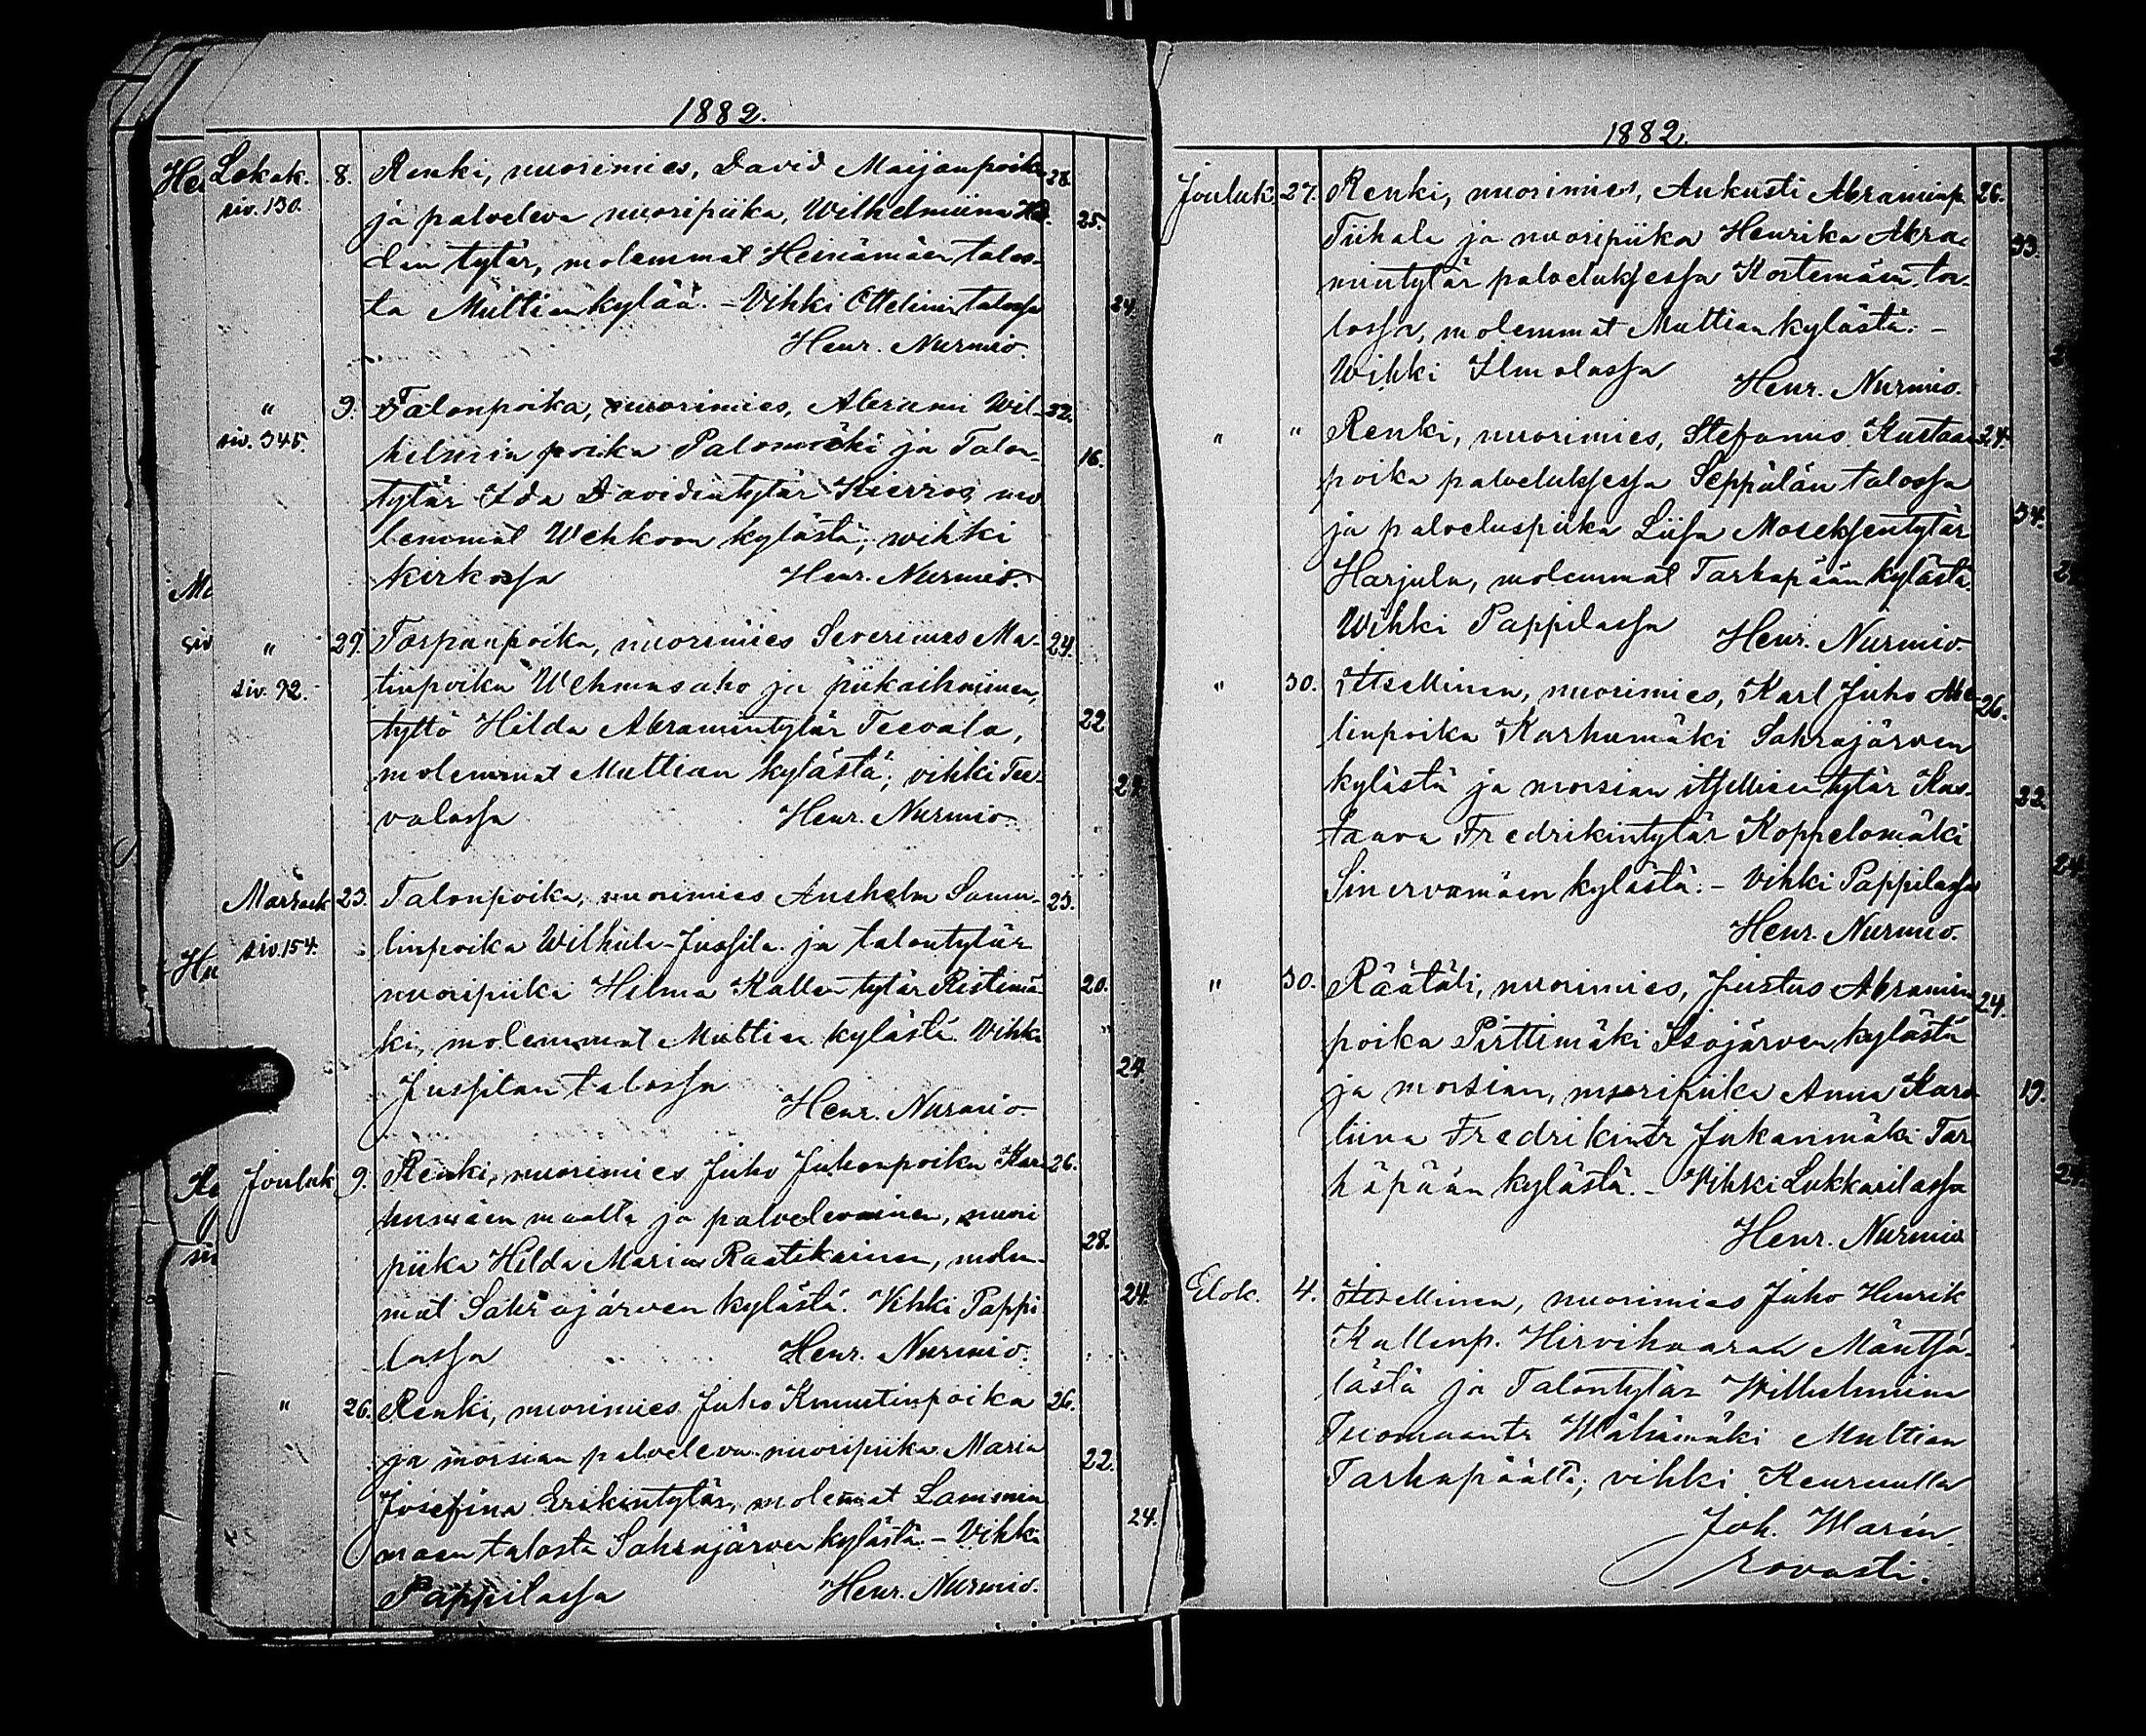 1882.
Lokak. 8. Renki, nuorimies, David Maijanpoika 28.
siv. 130. ja palveleva nuoripiika, Wilhelmiina 25.
tytär, molemmat Heinämäen talos-
ta Multian kylää. – Vihki Ottelinin talossa 24.
Henr. Nurmio.
" 9. Talonpoika, nuorimies, Abrami Wil- 32.
siv. 345. helmin poika Palomäki ja Talon- 16.
tytär Ida Davidintytär Kierros, mo
lemmat Wehkoon kylästä; wihki
kirkossa Henr. Nurmio.
" 29. Torpanpoika, nuorimies Severinus Ma- 24.
siv. 92. tinpoika Wehmasaho ja piikaihminen,
tyttö Hilda Abramintytär Teevala, 22
molemmat Multian kylästä; vihki Tee
valassa Henr. Nurmio. 24.
Marrask 23. Talonpoika, nuorimies Anshelm Samu- 23.
siv. 154. linpoika Wilhula-Jussila ja talontytär
nuoripiika Hilma Kallen tytär Ristimä- 20.
ki, molemmat Multian kylästä. Vihki
Jussilan talossa 24.
Henr. Nurmio
Jouluk 9. Renki, nuorimies Juho Juhonpoika Kar 26.
humäen maalta ja palvelevainen, nuori
piika Hilda Maria Raatikainen, molem- 28.
mat Sahrajärven kylästä. Vihki Pappi 24.
lassa Henr. Nurmio.
" 26. Renki, nuorimies Juho Knuutinpoika 26.
ja morsian palveleva nuoripiika Maria 22.
Josefina Erikintytär, molemat Lammin
maen talosta Sahrajärven kylästä. – Vihki 24.
Pappilassa Henr. Nurmio.
1882.
Jouluk 27. Renki, nuorimies, Aukusti Abraminp. 26.
Tiihala ja nuoripiika Henrika Abra- 33.
mintytär palveluksessa Kortemäen ta-
lossa, molemmat Multian kylästä. –
Wihki Ilmolassa Henr. Nurmio.
" " Renki, nuorimies, Stefanus Kustaan 24.
poika palveluksessa Seppälän talossa
ja palveluspiika Liisa Moseksentytär 34.
Harjula, molemmat Tarhapään kylästä.
Wihki Pappilassa Henr. Nurmio.
" 30. Itsellinen, nuorimies, Karl Juho 26.
linpoika Karhumäki Sahrajärven
kylästä ja morsian itsellisen tytär Kus- 22.
taava Fredrikintytär Koppelomäki
Sinervämäen kylästä. – Vihki Pappilassa
Henr. Nurmio.
" 30. Räätäli, nuorimies, Justus Abramin 24.
poika Pirttimäki Isojärven kylästä
ja morsian, nuoripiika Anna Karo 19.
liina Fredrikintr Jukanmäki Tar
hapään kylästä. – Vihki Lukkarilassa
Henr. Nurmio
Elok. 4. Itsellinen, nuorimies Juho Henrik
Kallenp. Hirvihaaran Mäntsä-
lästä ja Talontytär Wilhelmiina
Tuomaantr Wähämäki Multian
Tarhapäältä; vihki Keuruulla
Joh. Warén.
rovasti.